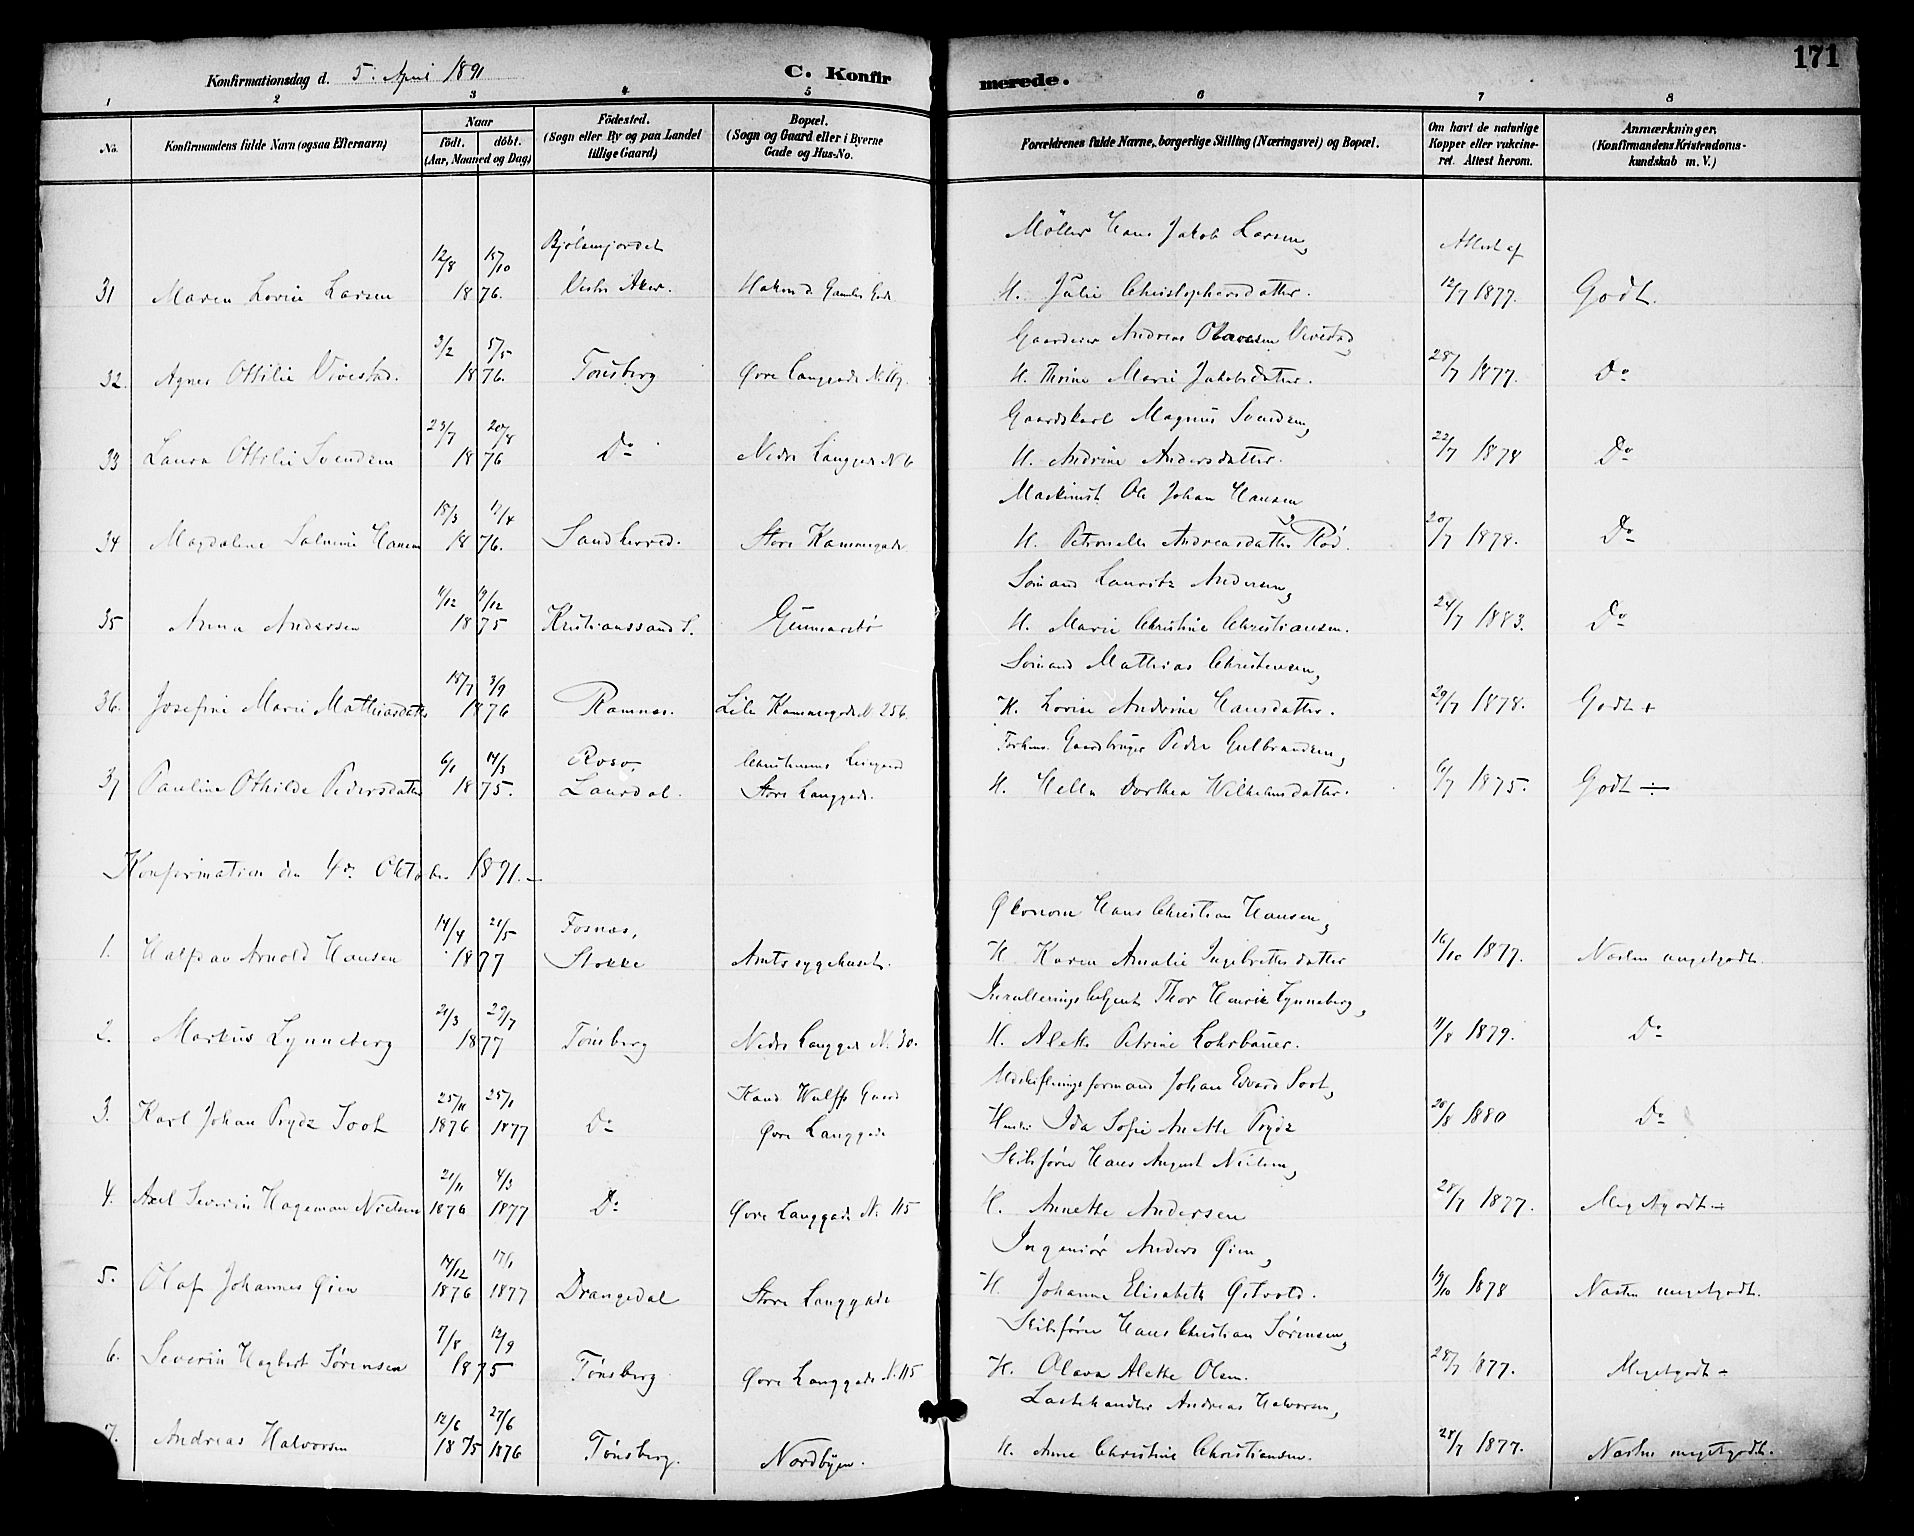 171
Konfirmationsdag d. 5. April 1891 C. Konfirmerede.
1 2 3 4 5 6 7 8
No. Konfirmandens fulde Navn (ogsaa Efternavn) Naar födt. döbt. (Aar, Maaned og Dag) Födested. (Sogn eller By og paa Landet tillige Gaard) Bopæl. (Sogn og Gaard eller i Byerne Gade og Hus-No. Forældrenes fulde Navne, borgerlige Stilling (Næringsvei) og Bopæl. Om havt de naturlige Kopper eller vakcineret. Attest herom. Anmærkninger. (Konfirmandens Kristendomskundskab m. V.)
12/8 15/10 Møller Hans Jakob Larsen, Attest af
31 Maren Lovise Larsen 1876. Vestre Aker. Hakon d. Gamles Gade H. Julie Christophersdatter. 12/7 1877. Godt.
3/2 5/5 Gaardeier Andreas Olavesen Vivestad,
32. Agnes Ottilie Vivestad. 1876. Tønsberg Øvre Langgade N. 117. H. Thrine Marie Jakobsdatter. 28/7 1877. Do
23/7 20/8 Gaardskarl Magnus Svendsen,
33 Laura Ottilie Svendsen 1876 Do Nedre Langgade N 6 H. Andrine Andersdatter. 22/7 1878 Do
15/3 17/4 Maskinist Ole Johan Hansen
34 Magdalene Hansen 1876. Sandherred. Store Kammegade H. Petronelle Andreasdatter Rød. 20/7 1878. Do
11/12 19/12 Sømand Lauritz Andersen,
35 Anna Andersen 1875 Kristianssand S. Gunnarsbø H. Marie Christine Christiansen. 24/7 1883. Do
15/7 3/9 Sømand Mathias Christensen,
36. Josefine Marie Mathiasdatter 1876 Ramnæs. Lille Kammegade N. 256. H. Lovise Andrine Hansdatter. 29/7 1878. Godt +
6/1 14/3 Gaardbruger Peder Gulbrandsen,
37 Pauline Othilde Pedersdatter 1875. Laurdal. Store Langgade. H. Helle Dorthea Wilhelmsdatter. 6/7 1875. Godt ÷
Konfirmation den 4de Oktober 1891.
14/4 21/5 Fosnæs, Økonom Hans Christian Hansen,
1. Halfdan Arnold Hansen 1877 Stokke Amtssygehuset. H. Karen Amalie Ingebretsdatter 16/10 1877. Næsten megetgodt.
21/3 29/7 Thor Henrik Lynneberg,
2. Markus Lynneberg 1877 Tønsberg Nedre Langgade N. 30. H. Alette Petrine Lohrbauer. 11/8 1879. Do
25/11 25/1 Wulffs Gaard Udskiftningsformand Johan Edvard Soot,
3. Karl Johan Prydz Soot 1876 1877 Do Øvre Langgade Hustru Ida Sofie Anette Prydz 20/8 1880 Do
21/11 4/3 Skibsfører Hans August Nielsen,
4. Axel Severin Hageman Nielsen 1876 1877 Do Øvre Langgade N. 115 H. Annette Andersen 28/7 1877. Megetgodt ÷
14/12 17/1 Ingeniør Anders Øien,
5. Olaf Johannes Øien 1876 1877 Drangedal Store Langgade H. Johanne Elisabeth Østvold. 19/10 1878 Næsten megetgodt.
7/8 12/9 Skibsfører Hans Christian Sørensen,
6. Severin Hagbert Sørensen 1875 Tønsberg. Øvre Langgade N. 115 H. Olava Alette Olsen. 28/7 1877. Megetgodt ÷
12/6 27/6 Lastehandler Andreas Halvorsen,
7. Andreas Halvorsen 1875 1876 Tønsberg. Nordbyen. H. Anne Christine Christiansen. 28/7 1877. Næsten megetgodt.